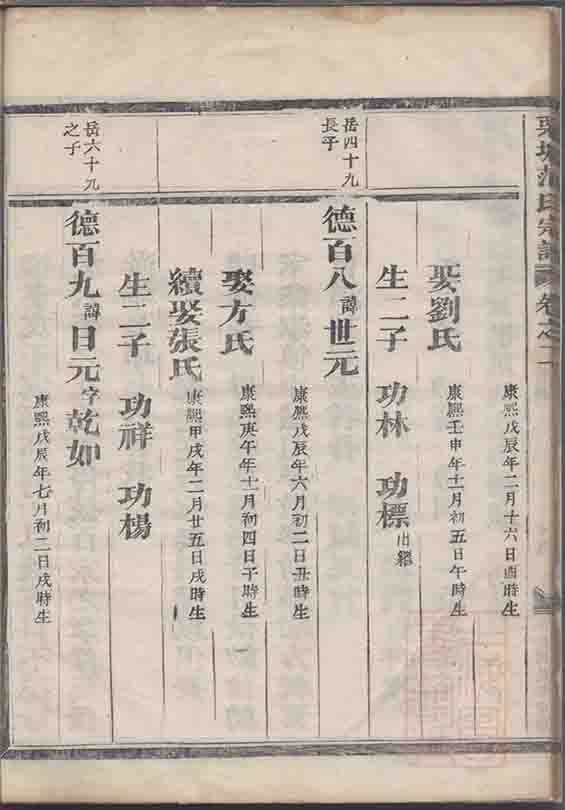 氏宗譜 卷之二
康熙戊辰年二月十六日酉時生
娶劉氏
康熙壬申年十二月初五日午時生
生二子 功林 功標出繼
岳四十九長子
德百八諱世元
康熙戊辰年六月初二日丑時生
娶方氏
康熙庚午年十一月初四日子時生
續娶張氏
康熙甲戌年二月廿五日戌時生
生二子 功祥 功楊
岳六十九之子
德百九諱日元字乾如
康熙戊辰年七月初二日戌時生